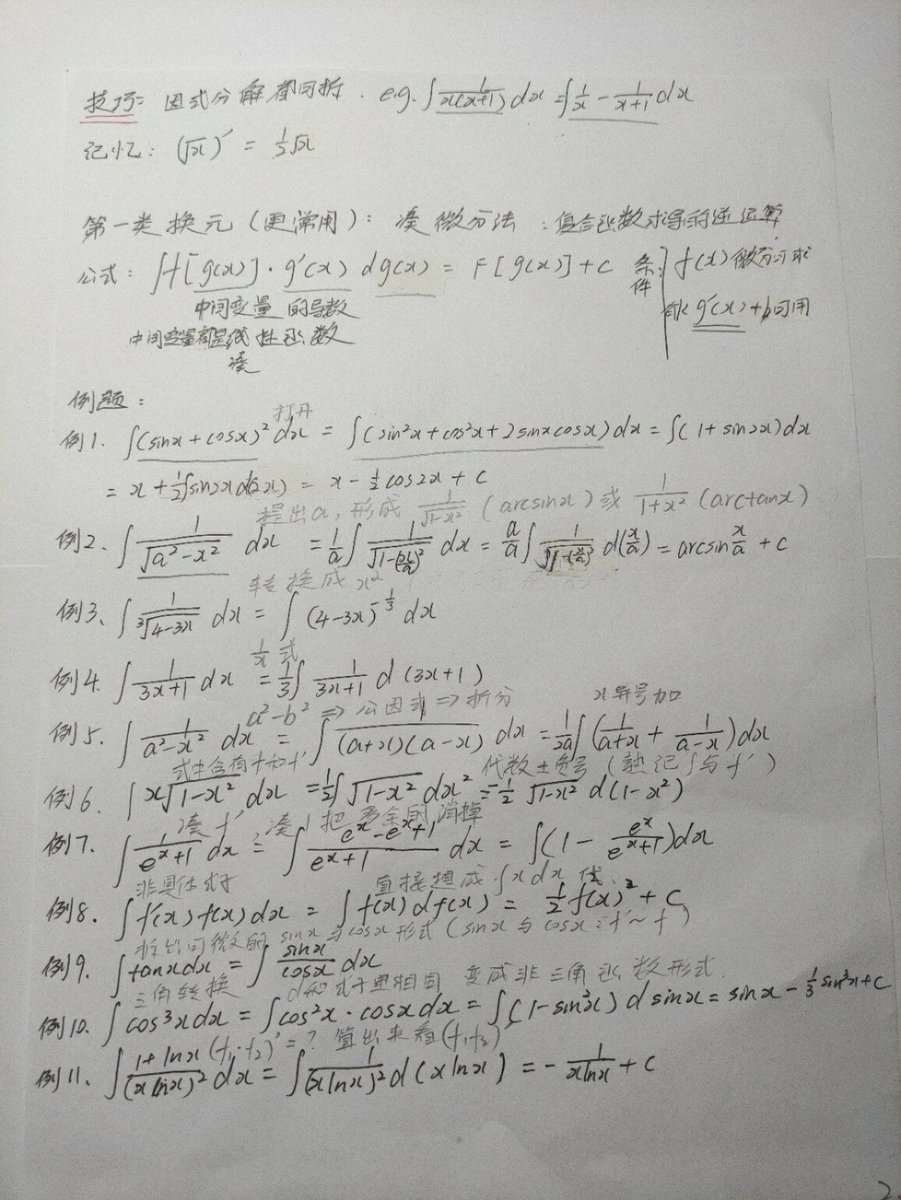 技巧: 因式分解看可拆. e.g. ∫1/x(x+1) dx = ∫1/x - 1/x+1 dx
记忆: (√x)′ = ½√x
第一类换元(更常用): 凑微分法: 复合函数求导的逆运算
公式: ∫f[g(x)]·g′(x) dg(x) = F[g(x)]+c 条件 f(x)微分可求
中间变量 的导数 g′(x)+b可用
中间变量都是线性函数
凑
例题:
打开
例1. ∫(sinx+cosx)² dx = ∫(sin²x+cos²x+2sinxcosx)dx = ∫(1+sin2x)dx
= x+½∫sin2xd(2x) = x-½cos2x+c
提出a, 形成 1/√1-x² (arcsinx) 或 1/1+x² (arctanx)
例2. ∫1/√a²-x² dx = 1/a∫1/√1-(x/a)² dx = a/a∫1/√1-(x/a)² d(x/a) = arcsin x/a + c
转换成x²
例3. ∫1/³√4-3x dx = ∫(4-3x)^-⅓ dx
1/x 式
例4. ∫1/3x+1 dx = ⅓∫1/3x+1 d(3x+1)
a²-b² ⇒ 公因式 ⇒ 拆分 x异号加
例5. ∫1/a²-x² dx = ∫1/(a+x)(a-x) dx = 1/2a∫(1/a+x + 1/a-x)dx
式中含有f和f′ 代数±负号(熟记∫与f′)
例6. ∫x√1-x² dx = ½∫√1-x² dx² = -½ √1-x² d(1-x²)
凑f′, 凑1把多余的消掉
例7. ∫1/e^x+1 dx = ∫e^x-e^x+1/e^x+1 dx = ∫(1 - e^x/e^x+1)dx
非具体式子 直接想成∫xdx 代.
例8. ∫f′(x)f(x)dx = ∫f(x)df(x) = ½f(x)²+c
拆出可微分的 sinx与cosx形式(sinx与cosx: f′~f)
例9. ∫tanxdx = ∫sinx/cosx dx
三角转换 d和式子里相同 变成非三角函数形式.
例10. ∫cos³xdx = ∫cos²x·cosxdx = ∫(1-sin²x)dsinx = sinx-⅓sin³x+c
(f₁·f₂)′=? 算出来看(f₁f₂)
例11. ∫1+lnx/(xlnx)² dx = ∫1/(xlnx)² d(xlnx) = -1/xlnx + c
2